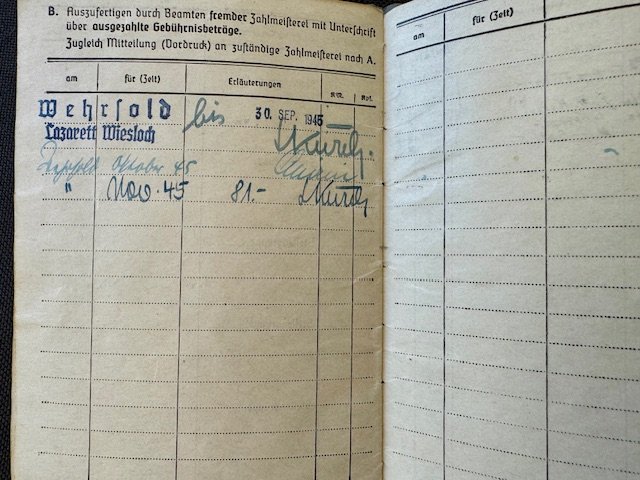 B. Auszufertigen durch Beamten fremder Zahlmeisterei mit Unterschrift
über ausgezahlte Gebührnisbeträge.
Zugleich Mitteilung (Vordruck) an zuständige Zahlmeisterei nach A.
am für (Zeit) Erläuterungen RM. Rpf.
Wehrsold bis 30. SEP. 1945
Lazarett Wiesloch
Wehrsold Oktober 45
" Nov. 45 81.-
am für (Zeit)